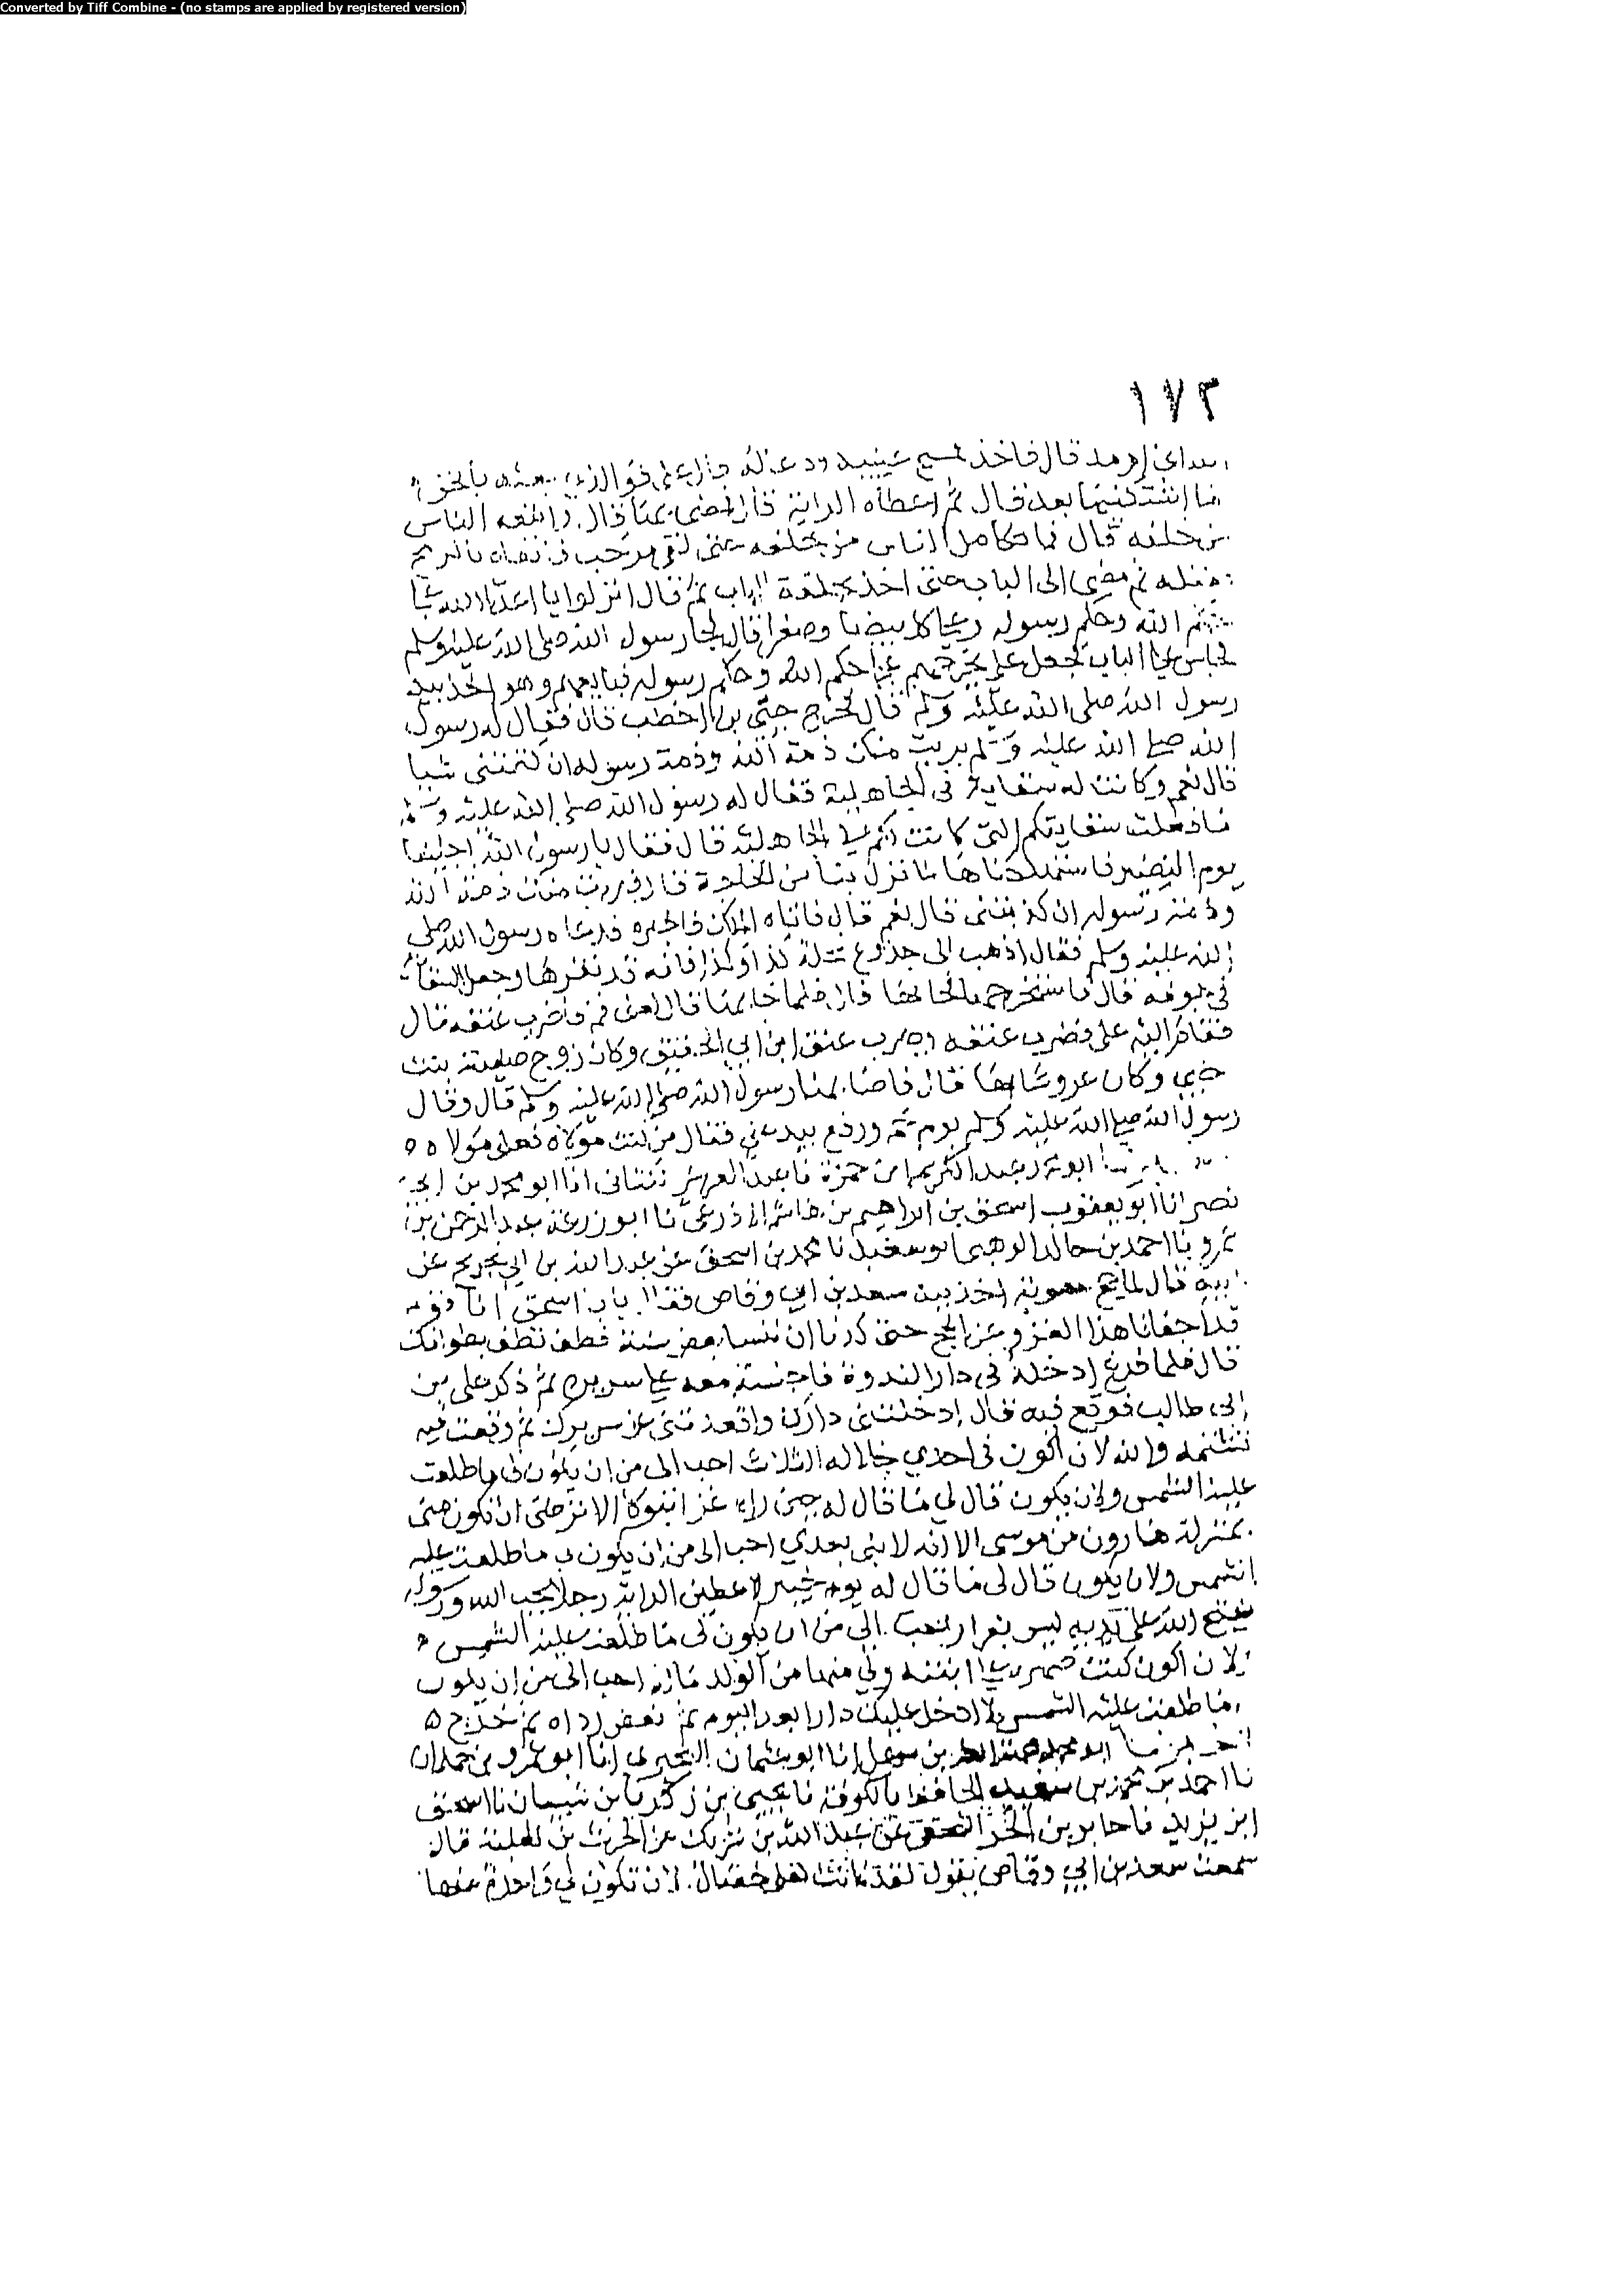 Converted by Tiff Combine - (no stamps are applied by registered version)
١٧٣
قال فاخذ يمسح عينيه ودعا له قال علي فوالذي بعثه بالحق
ما اشتكيتهما بعد قال ثم اعطاه الراية قال فمضى بها قال واتبعه الناس
من خلفه قال فما تكامل الناس من خلفه حتى لقي مرحب فاتقاه بالرمح
فقتله ثم مضى الى الباب حتى اخذ بحلقة الباب ثم قال انزلوا يا اعداء الله على
حكم الله وحكم رسوله وعلى كل بيضا وصفرا قال فجا رسول الله صلى الله عليه وسلم
فجلس على الباب فجعل علي يخرجهم على حكم الله وحكم رسوله فبايعهم وهو اخذ بيد
رسول الله صلى الله عليه وسلم قال فخرج حيي بن اخطب قال فقال له رسول
الله صلى الله عليه وسلم بريت منك ذمة الله وذمة رسوله ان كتمتني شيا
قال نعم وكانت له سقاية في الجاهلية فقال له رسول الله صلى الله عليه وسلم
ما فعلت سقايتكم التي كانت لكم في الجاهلية قال فقال يا رسول الله اجلينا
يوم النضير فاستهلكناها لما نزل بنا من الحاجة قال فبريت منك ذمة الله
وذمة رسوله ان كذبتني قال نعم قال فاتاه الملك فاخبره فدعاه رسول الله صلى
الله عليه وسلم فقال اذهب الى جذوع نخلة كذا وكذا فانه قد نقرها وجعل السقاية
في جوفه قال فاستخرجها فجا بها قال فلما جا بها قال لعلي قم فاضرب عنقه قال
فقام اليه علي فضرب عنقه وضرب عنق ابن ابي الحقيق وكان زوج صفية بنت
حيي وكان عروسا بها قال فاصابها رسول الله صلى الله عليه وسلم قال وقال
رسول الله صلى الله عليه وسلم يوم ورفع بيد علي فقال من كنت مولاه فعلي مولاه ه
ابو محمد عبد الكريم بن حمزة نا عبد العزيز الكتاني انا ابو محمد بن ابي
نصر انا ابو يعقوب اسحق بن ابراهيم بن هاشم الاذرعي نا ابو زرعة عبد الرحمن بن
عمرو نا احمد بن خالد الوهبي ابو سعيد نا محمد بن اسحق عن عبد الله بن ابي نجيح عن
ابيه قال لما حج معوية اخذ بيد سعد بن ابي وقاص فقال يابا اسحق انا قوم
قد اجفانا هذا الغزو عن الحج حتى كدنا ان ننسا بعض سننه فطف نطف بطوافك
قال فلما فرغ ادخله في دار الندوة فاجلسه معه على سريره ثم ذكر علي بن
ابي طالب فوقع فيه قال ادخلتني دارك واقعدتني على سريرك ثم وقعت فيه
تشتمه والله لان اكون في احدي خلاله الثلاث احب الي من ان يكون لي ما طلعت
عليه الشمس ولان يكون قال لي ما قال له حين راه غزا تبوكا الا ترضى ان تكون مني
بمنزلة هارون من موسى الا انه لا نبي بعدي احب الي من ان يكون لي ما طلعت عليه
الشمس ولان يكون قال لي ما قال له يوم خيبر لاعطين الراية رجلا يحب الله ورسوله
يفتح الله على يديه ليس بفرار احب الي من ان يكون لي ما طلعت عليه الشمس
ولان اكون كنت صهره على ابنته ولي منها من الولد ماله احب الي من ان يكون
لي ما طلعت عليه الشمس لا ادخل عليك دارا بعد اليوم ثم نفض رداه ثم خرج ه
اخبرنا ابو محمد هبة الله بن سهل انا ابو عثمان البحيري انا ابو عمرو بن حمدان
نا احمد بن محمد بن سعيد الحافظ بالكوفة نا يحيى بن زكريا بن شيبان نا اسحق
ابن يزيد نا جابر بن الحر النخعي عن عبد الله بن شريك عن الحرث بن ثعلبة قال
سمعت سعد بن ابي وقاص يقول لقد كانت لعلي خصال لان تكون لي واحدة منها